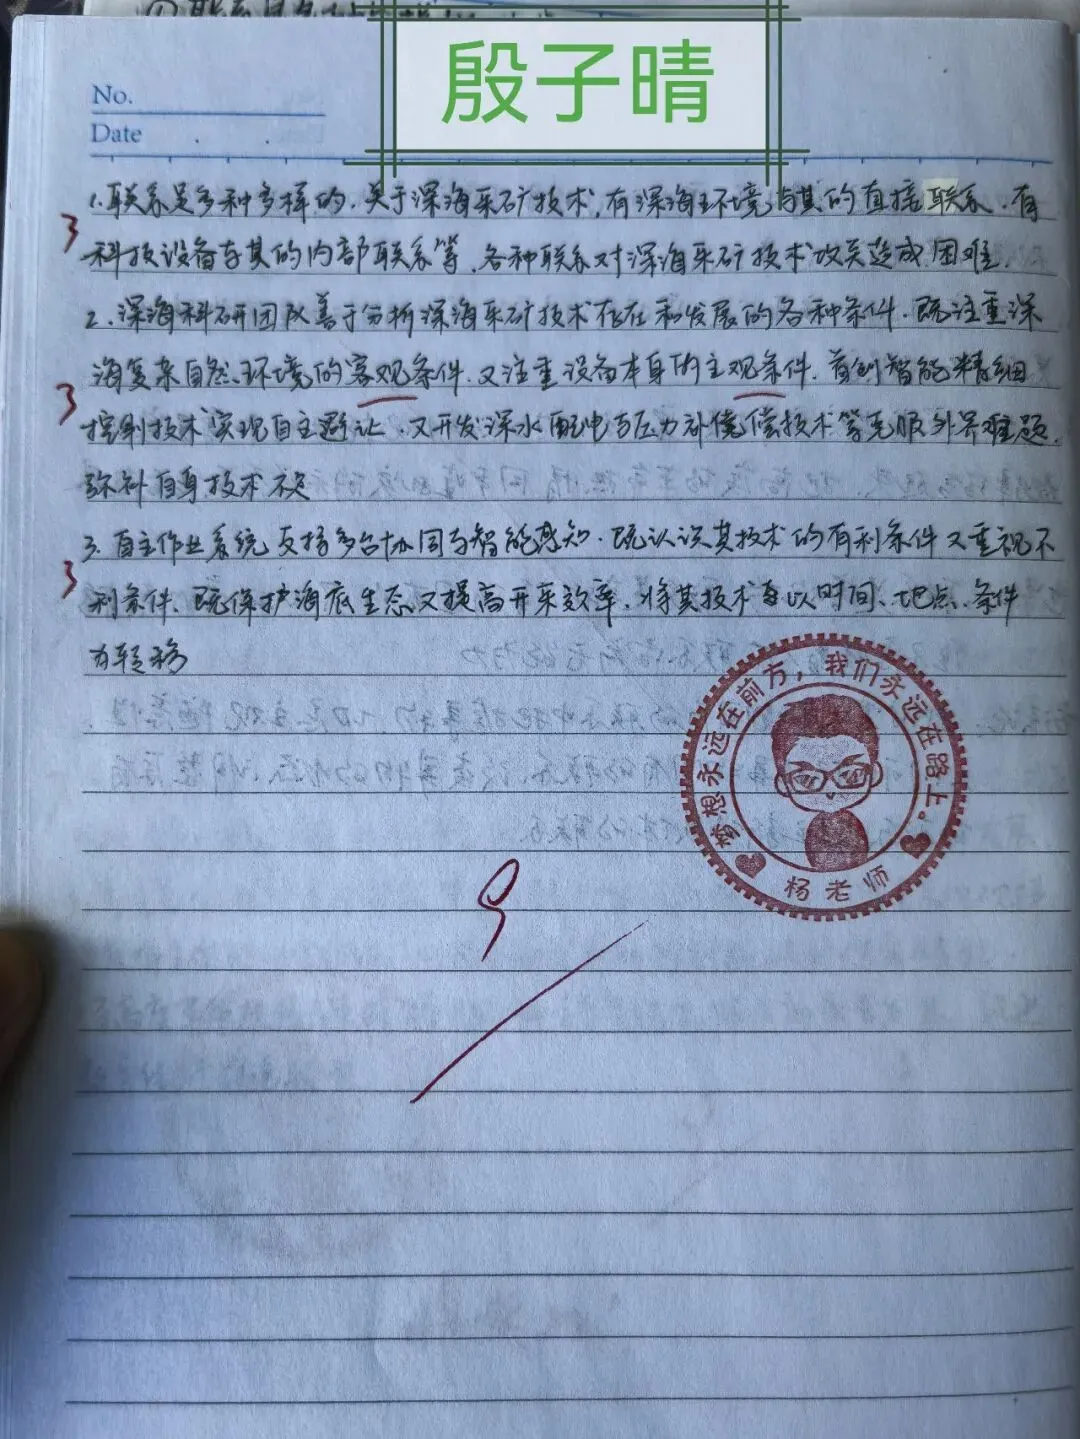 殷子晴
No.
Date
1.联系是多种多样的,关于深海采矿技术,有深海环境与其的直接联系,有
3
科技设备与其的内部联系等,各种联系对深海采矿技术攻关造成困难.
2.深海科研团队善于分析深海采矿技术存在和发展的各种条件.既注重深
海复杂自然环境的客观条件,又注重设备本身的主观条件.首创智能精细
3
控制技术实现自主避让,又开发深水配电与压力补偿技术等克服外界难题,
弥补自身技术不足
3.自主作业系统支持多台协同与智能感知.既认识其技术的有利条件又重视不
3
利条件、既保护海底生态又提高开采效率,将其技术与以时间、地点、条件
为转移
梦想永远在前方,我们永远在路上。
杨老师
9